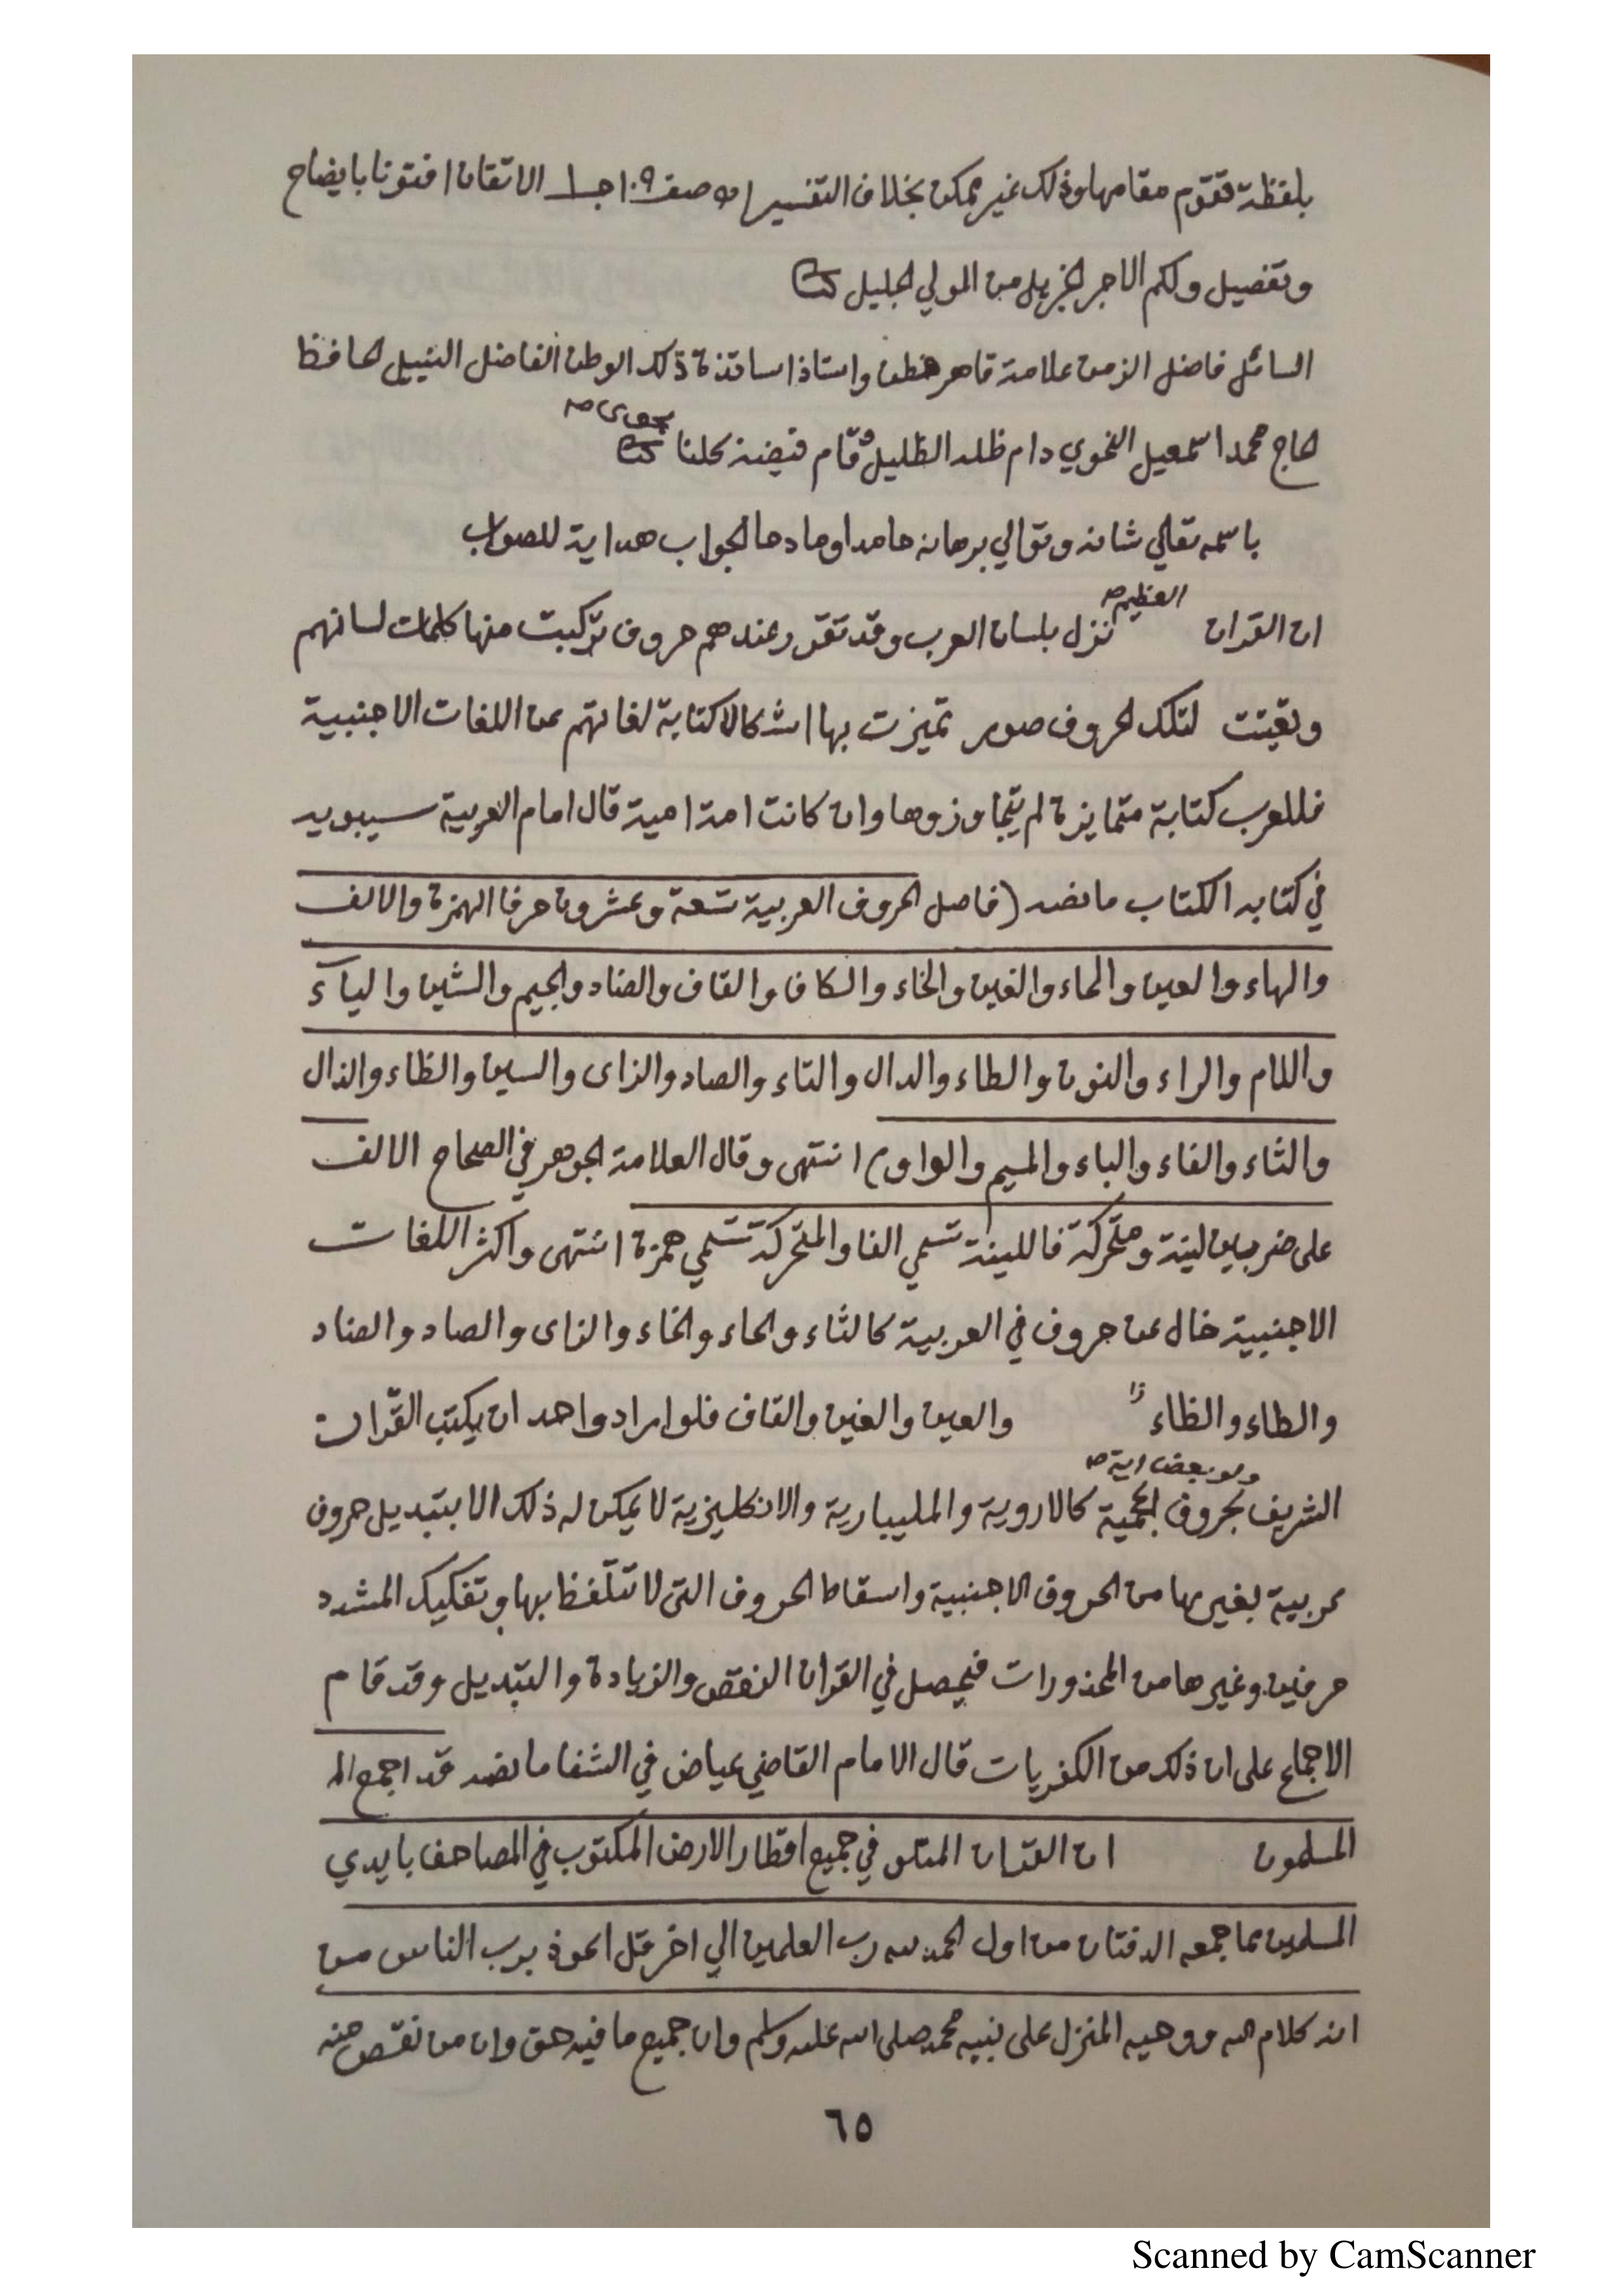 بلفظة تقوم مقامها وذلك غير ممكن بخلاف التفسير اه صفـ ١٠٩ جـ ١ الاتقان افتونا بايضاح
وتفصيل ولكم الاجر الجزيل من المولي الجليل
السائل فاضل الزمن علامة قاهر فطن واستاذ اساتذة ذلك الوطن الفاضل النبيل الحافظ
الحاج محمد اسمعيل النحوي دام ظله الظليل وقام فيضنه كلنا
باسمه تعالي شانه وتوالي برهانه حامدا ومادحا الجواب هداية للصواب
ان القران العظيم نزل بلسان العرب وقد تقرر عندهم حروف تركبت منها كلمات لسانهم
وتعينت لتلك الحروف صور تميزت بها اشكالا كتابة لغاتهم عن اللغات الاجنبية
فللعرب كتابة متمايزة لم يتجاوزوها وان كانت امة امية قال امام العربية سيبويه
في كتابه الكتاب ما نصه (فاصل الحروف العربية تسعة وعشرون حرفا الهمزة والالف
والهاء والعين والحاء والغين والخاء والكاف والقاف والضاد والجيم والشين والياء
واللام والراء والنون والطاء والدال والتاء والصاد والزاى والسين والظاء والذال
والثاء والفاء والباء والميم والواو) انتهى وقال العلامة الجوهر في الصحاح الالف
على ضربين لينة ومتحركة فاللينة تسمي الفا والمتحركة تسمي همزة انتهى واكثر اللغات
الاجنبية خال عن حروف في العربية كالثاء والحاء والخاء والزاى والصاد والضاد
والطاء والظاء والعين والغين والقاف فلو اراد واحد ان يكتب القران
الشريف ولو بعض اية بحروف اعجمية كالاروية والمليبارية والانكليزية لا يمكن له ذلك الا بتبديل حروف
عربية بغيرها من الحروف الاجنبية واسقاط الحروف التى لا تتلفظ بها وتفكيك المشدد
حرفين وغيرها من المحذورات فيحصل في القران النقص والزيادة والتبديل وقد قام
الاجماع على ان ذلك من الكفريات قال الامام القاضي عياض في الشفا ما نصه قد اجمع الـ
المسلمون ان القران المتلو في جميع اقطار الارض المكتوب في المصاحف بايدي
المسلمين مما جمعه الدفتان من اول الحمد لله رب العلمين الي اخر قل اعوذ برب الناس من
انه كلام الله ووحيه المنزل على نبيه محمد صلى الله عليه وسلم وان جميع ما فيه حق وان من نقص منه
٦٥
Scanned by CamScanner